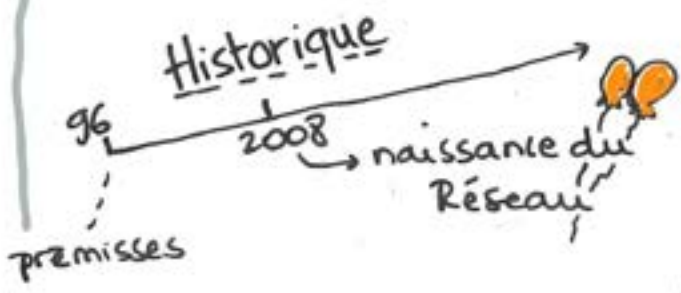 Historique
96
2008
naissance du
Réseau
premisses